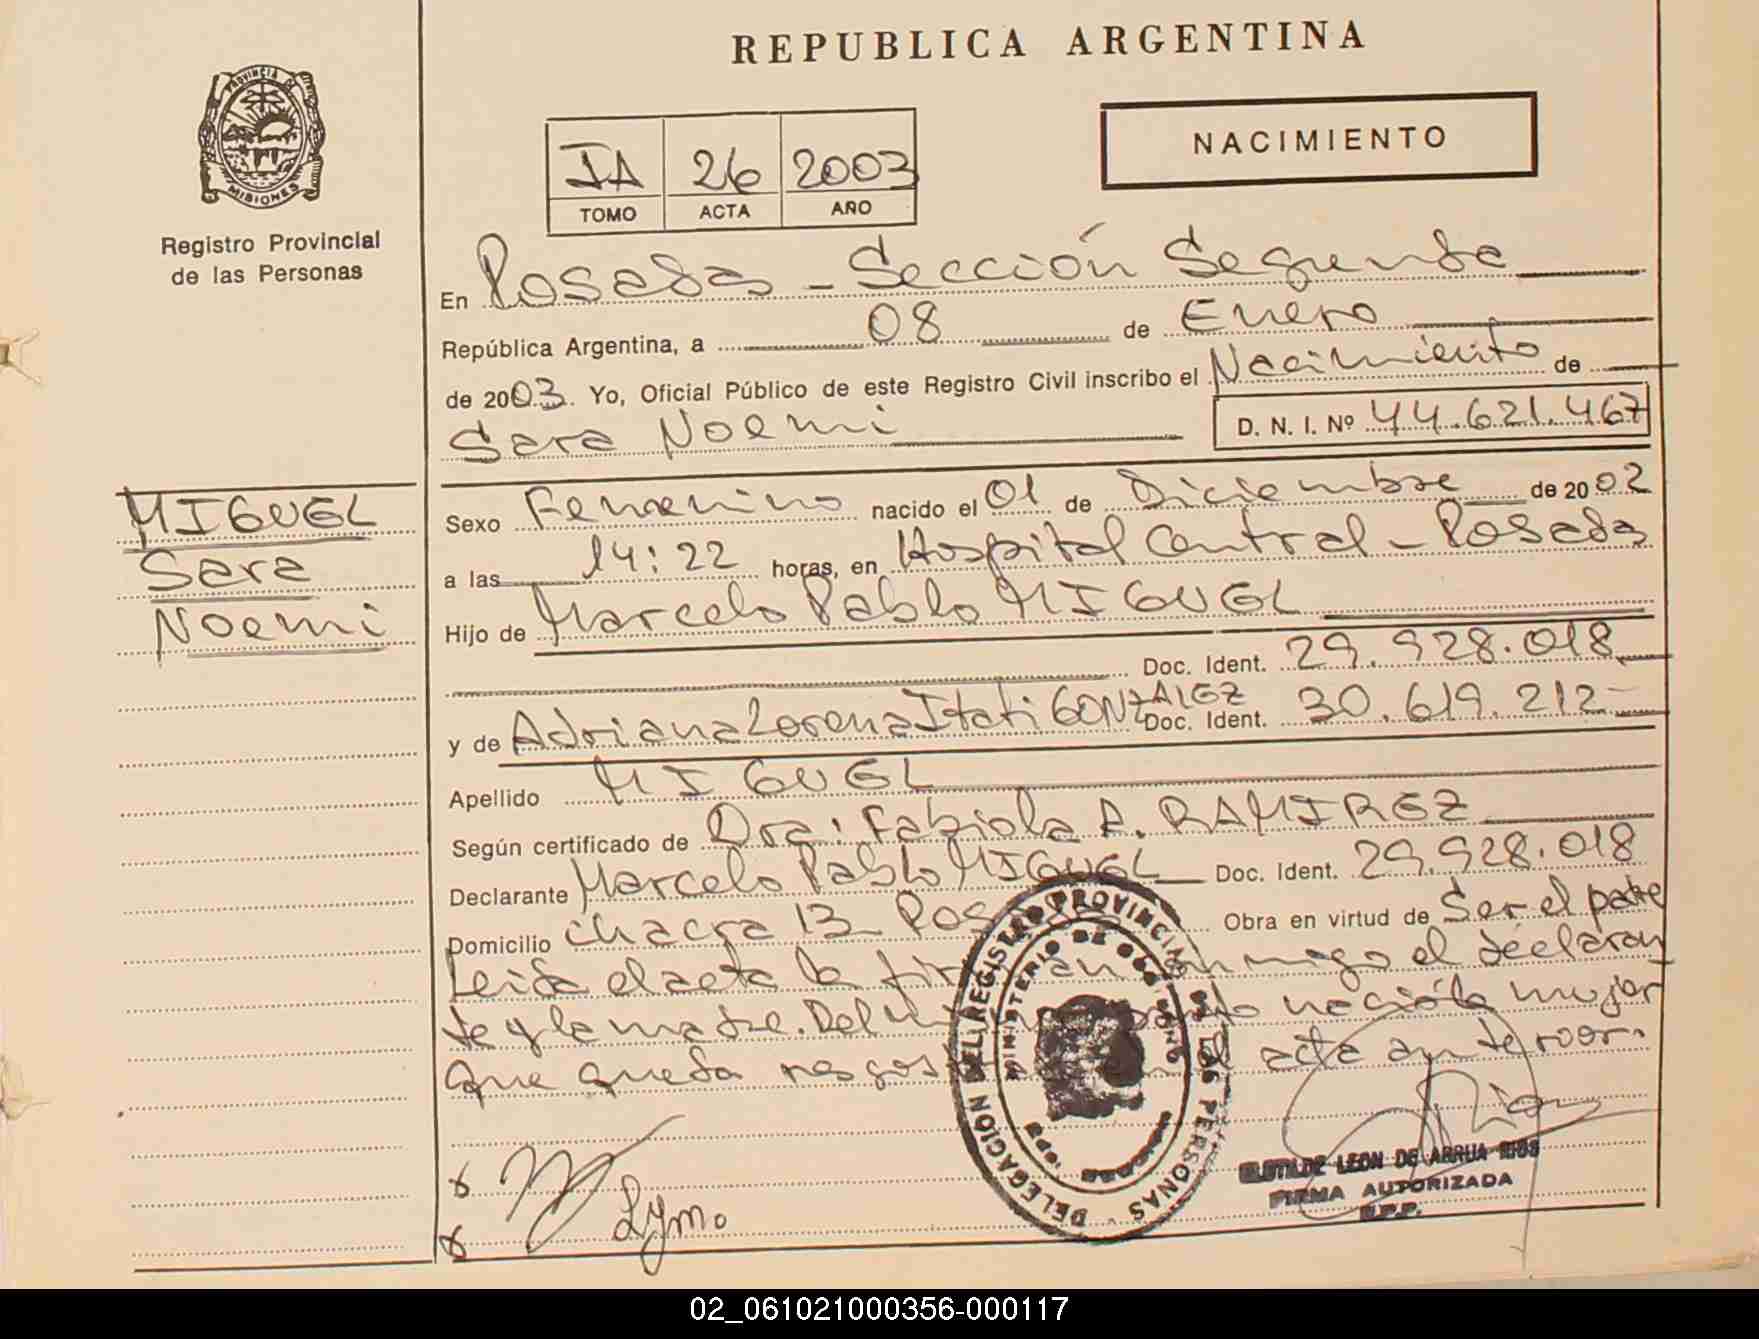 REPUBLICA ARGENTINA
PROVINCIA DE MISIONES
Registro Provincial
de las Personas
IA 26 2003
TOMO ACTA AÑO
NACIMIENTO
En Posadas - Sección Segunda
República Argentina, a 08 de Enero
de 2003. Yo, Oficial Público de este Registro Civil inscribo el Nacimiento de
Sara Noemi D. N. I. Nº 44.621.467
MIGUEL
Sara
Noemi
Sexo Femenino nacido el 01 de Diciembre de 2002
a las 14:22 horas, en Hospital Central - Posadas
Hijo de Marcelo Pablo MIGUEL
Doc. Ident. 29.928.018
y de Adriana Lorena Itati GONZALEZ Doc. Ident. 30.619.212-
Apellido MIGUEL
Según certificado de Dra: Fabiola A. RAMIREZ
Declarante Marcelo Pablo MIGUEL Doc. Ident. 29.928.018
Domicilio Chacra 13 Obra en virtud de Ser el padre
Leida el acta la conmigo el declaran
te y la madre. Del nació la mujer
que queda en el acta anterior.
DELEGACION DEL REGISTRO PROVINCIAL DE LAS PERSONAS
MINISTERIO DE GOBIERNO
CLOTILDE LEON DE ARRUA RIOS
FIRMA AUTORIZADA
R.P.P.
02_061021000356-000117